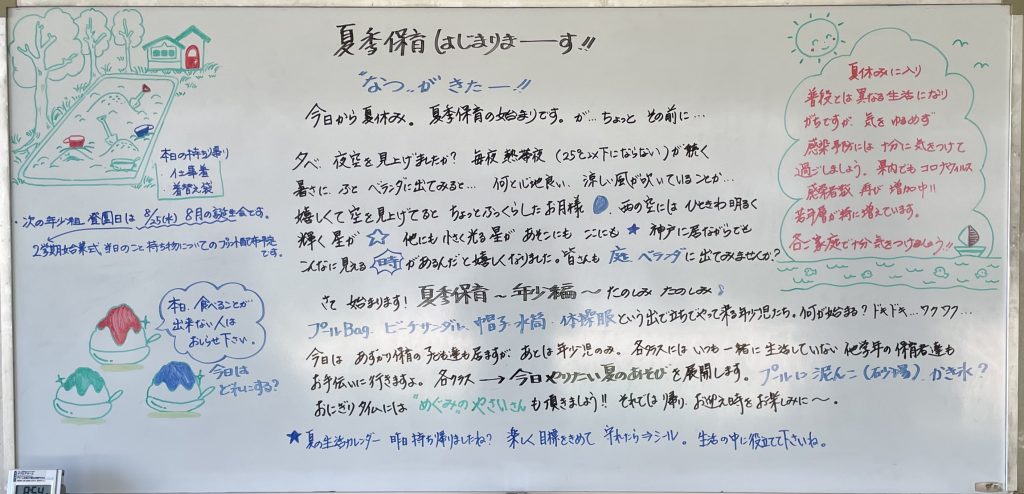 夏季保育はじまりまーーす!!
"なつ"がきたー!!
今日から夏休み。夏季保育の始まりです。が…ちょっとその前に…
夕べ、夜空を見上げましたか？毎夜熱帯夜(25℃以下にならない)が続く
暑さに、ふとベランダに出てみると…何と心地良い、涼しい風が吹いていることか…
嬉しくて空を見上げてると ちょっとふっくらしたお月様 、西の空には ひときわ明るく
輝く星が☆ 他にも小さく光る星が あそこにも ここにも★ 神戸に居ながらでも
こんなに見える時があるんだと嬉しくなりました。皆さんも 庭、ベランダに出てみませんか？
さて 始まります！夏季保育〜年少編〜たのしみ たのしみ♪
プールBag、ビーチサンダル、帽子、水筒、体操服という出で立ちでやって来る年少児たち。何が始まる？ドキドキ…ワクワク…
今日は あずかり保育の子ども達も居ますが、あとは年少児のみ。各クラスには いつも一緒に生活していない他学年の保育者達も
お手伝いに行きますよ。各クラス→今日やりたい夏のあそびを展開します。プール？泥んこ(砂場)、かき氷？
おにぎりタイムには"めぐみのやさいさん"も頂きましょう!! それでは帰り、お迎え時をお楽しみに〜。
★夏の生活カレンダー 昨日持ち帰りましたね？ 楽しく目標をきめて 守れたら⇒シール。生活の中に役立てて下さいね。
本日の持ち帰り
・仕事着
・着替え袋
・次の年少組 登園日は 8/25(水) 8月の誕生会です。
2学期始業式、当日のこと 持ち物についてのプリント配布予定
です。
本日、食べることが
出来ない人は
おしらせ下さい。
今日は
どれにする？
夏休みに入り
普段とは異なる生活になり
がちですが、気をゆるめず
感染予防には十分に気をつけて
過ごしましょう。県内でもコロナウィルス
感染者数 再び 増加中!!
若年層が特に増えています。
各ご家庭で十分気をつけましょう!!